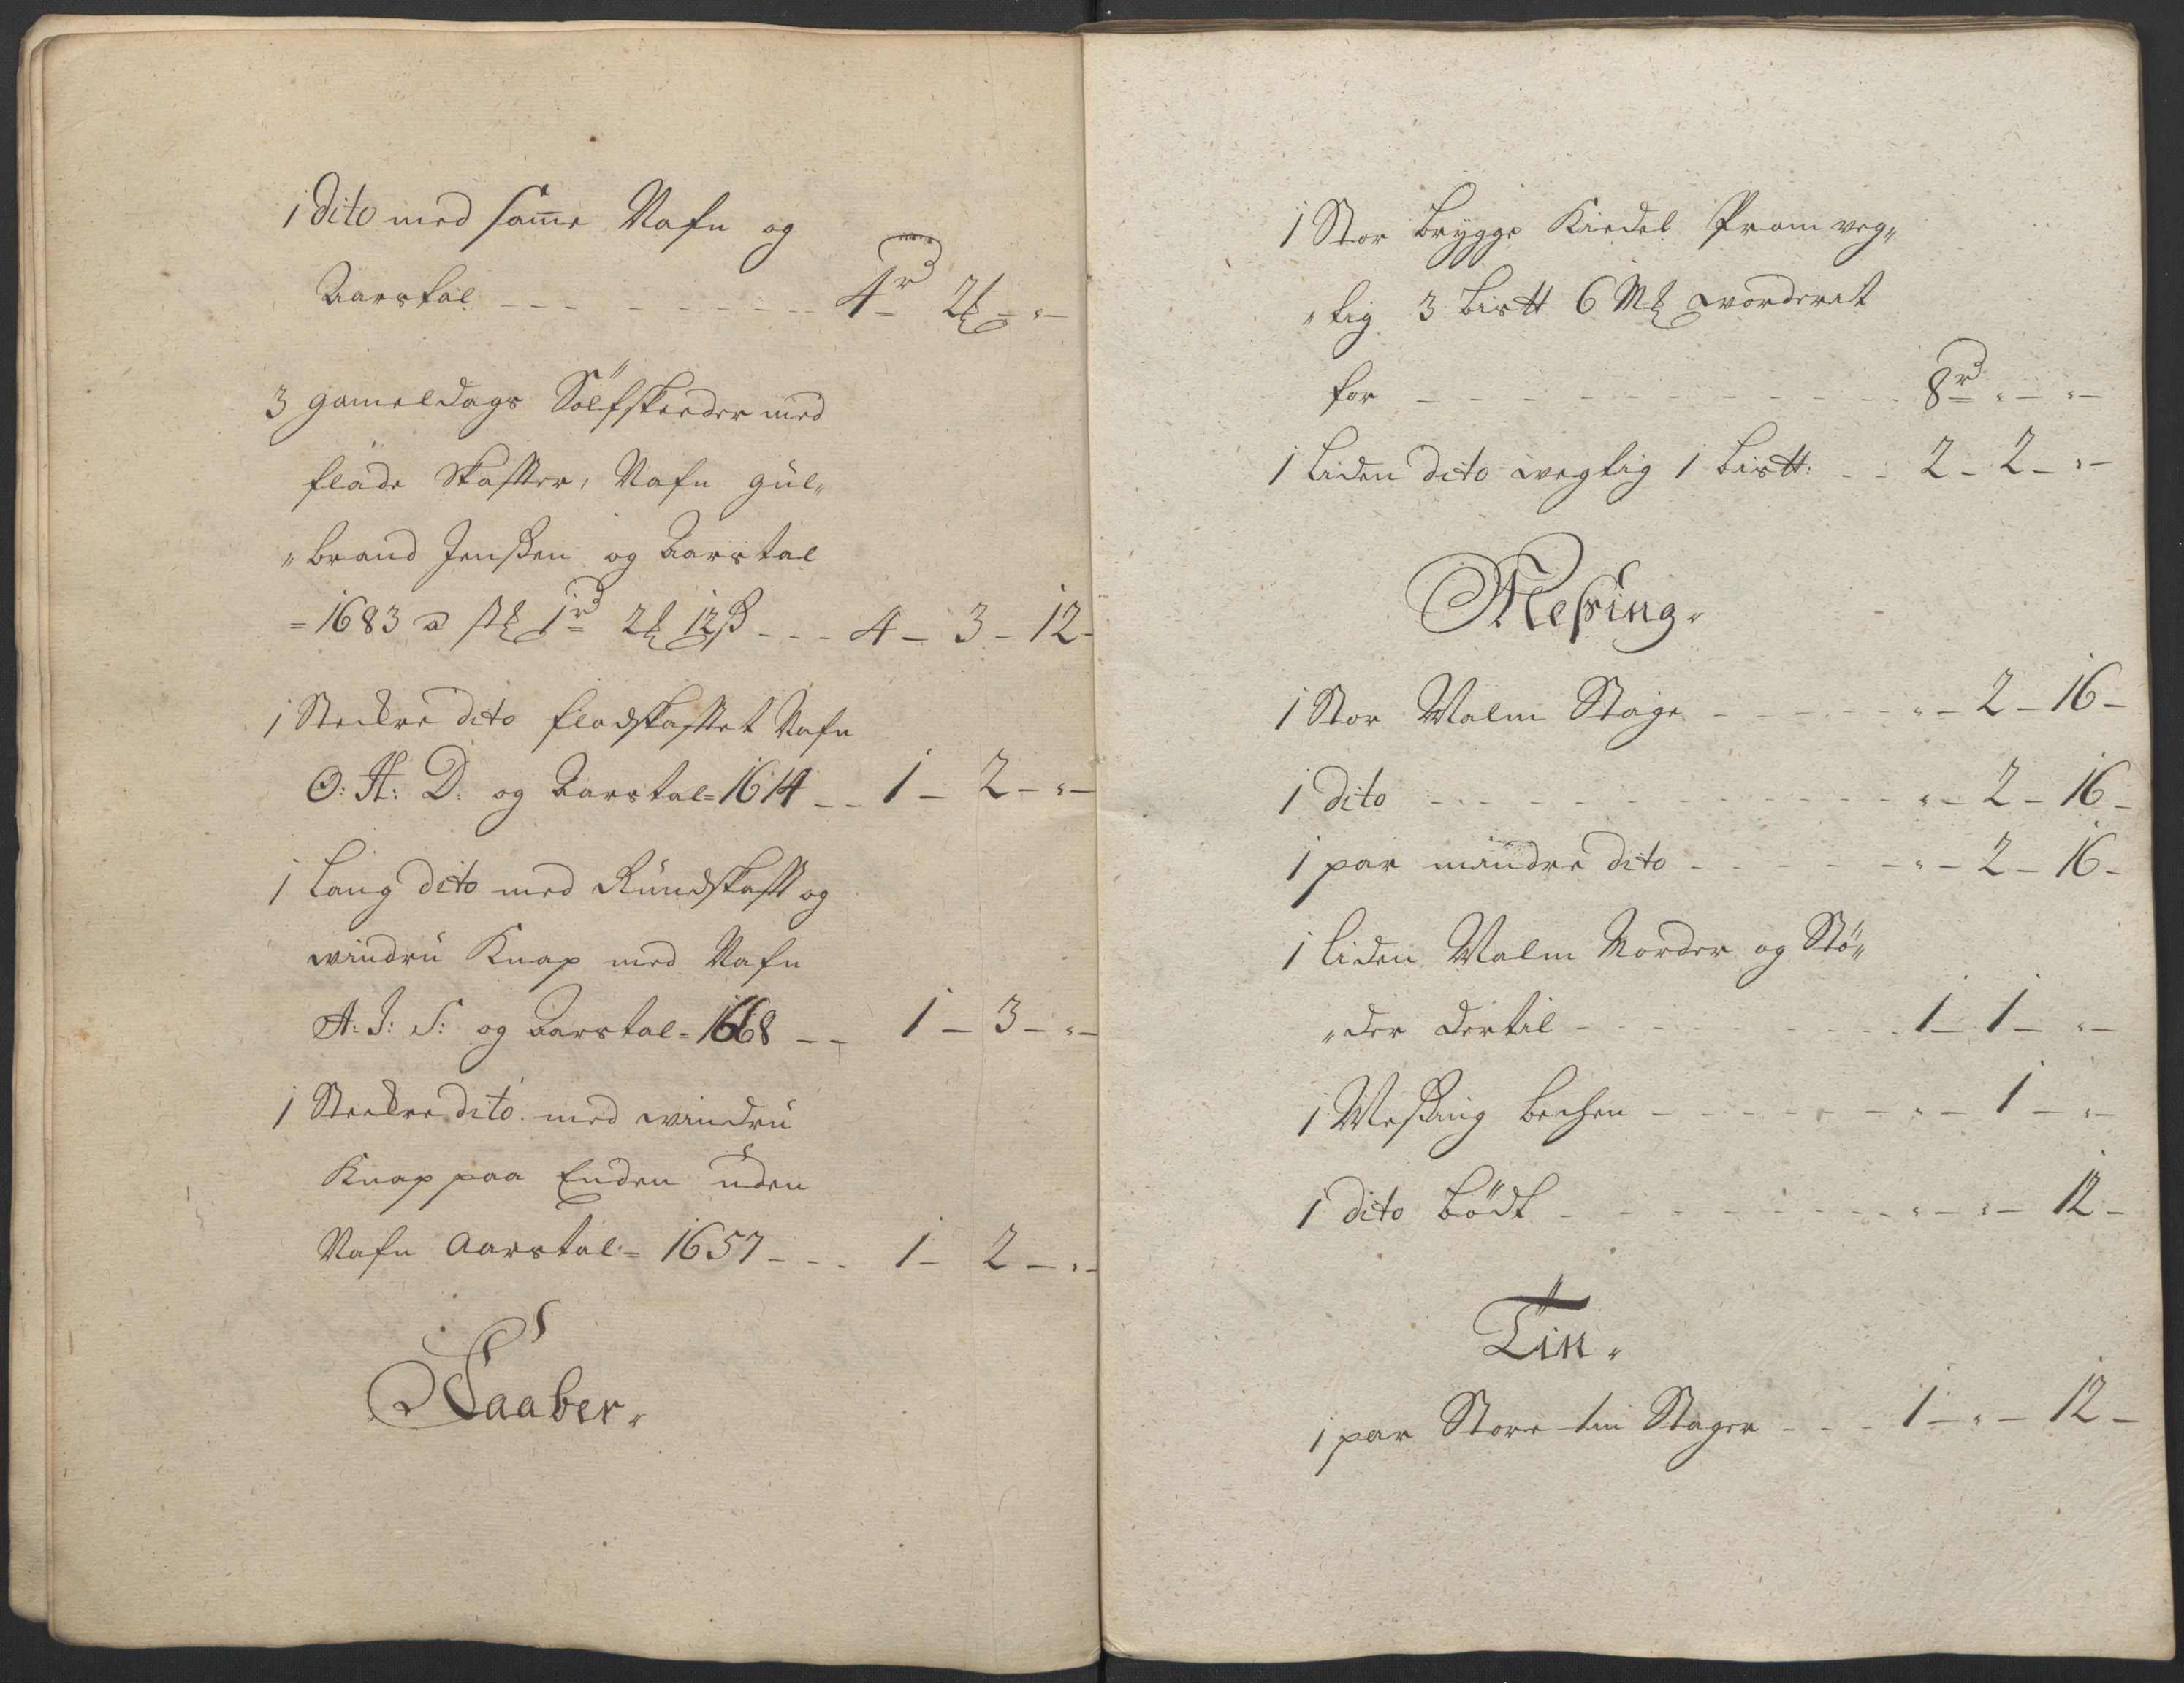 1 dito med samme Nafn og
Aarstal - - - - - - - - 4rd 2 ₰ - "-
3 gameldags Sölfskeeder med
flade Skaffter, Nafn Gul„
„brand Jenssen og Aarstal
=1683 a st 1rd 2 ₰ 12 ß - - - 4 - 3 - 12 -
1 Steckre dito fladskafftet Nafn
O: H: D: og Aarstal = 1614 - - 1 - 2 - "-
1 Lang dito med Rundskafft og
windru Knap med Nafn
A: J: S: og Aarstal = 1668 - - 1 - 3 - "-
1 Steckre dito med windru
Knap paa Enden uden
Nafn Aarstal = 1657 - - - 1 - 2 - "-
Kaaber.
1 Stor Brygge Kiedel veg„
„tig 3 Bis℔ 6 Mk worderet
for - - - - - - - - - - 8rd "- "-
1 Liden dito wegtig 1 Bis℔: - - 2 - 2 - "-
Messing.
1 Stor Malm Stage - - - - - "- 2 - 16 -
1 dito - - - - - - - - - - "- 2 - 16 -
1 par mindre dito - - - - - "- 2 - 16 -
1 liden Malm Morder og Stö„
„der dertil - - - - - - - - 1 - 1 - "-
1 Messing Becken - - - - - - "- 1 - "-
1 dito Bödt - - - - - - - - "- "- 12 -
Tin.
1 par Store tin Stager - - - 1 - "- 12 -